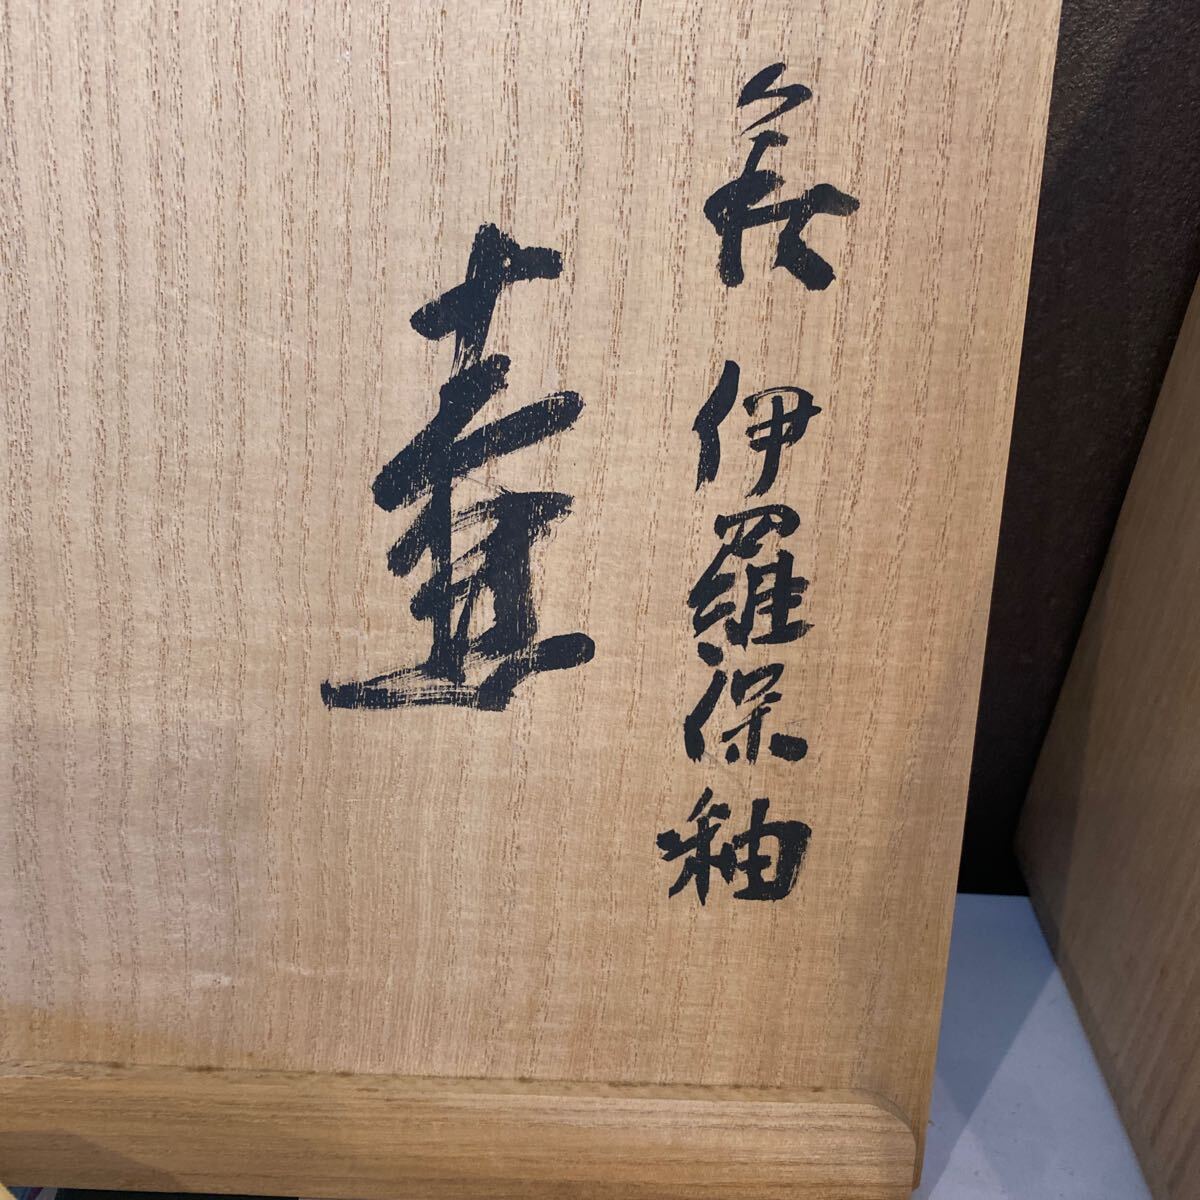 伊羅保釉
壷